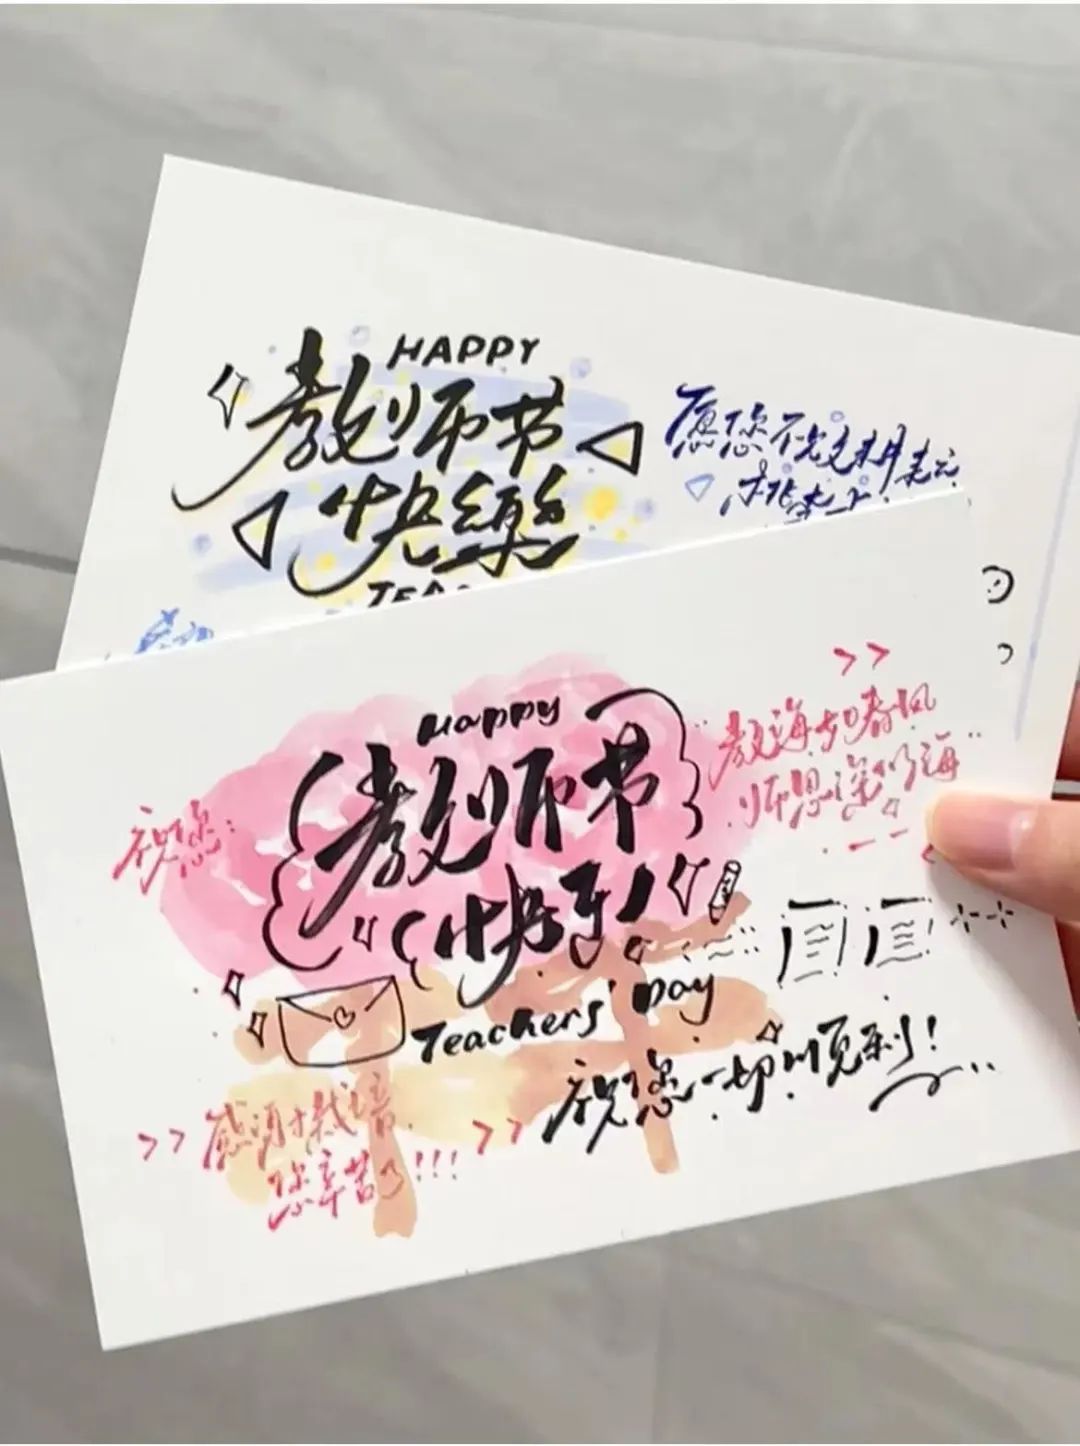 HAPPY
教师节
快樂
愿您
桃李
Happy
教师节
快乐!
祝您:
"教诲如春风
师恩深似海"
Teachers' Day
祝您一切顺利!
感谢栽培
您辛苦了!!!